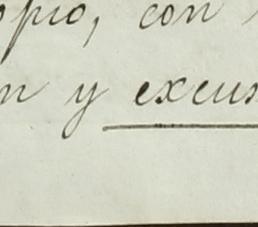 opio, con
n y excus